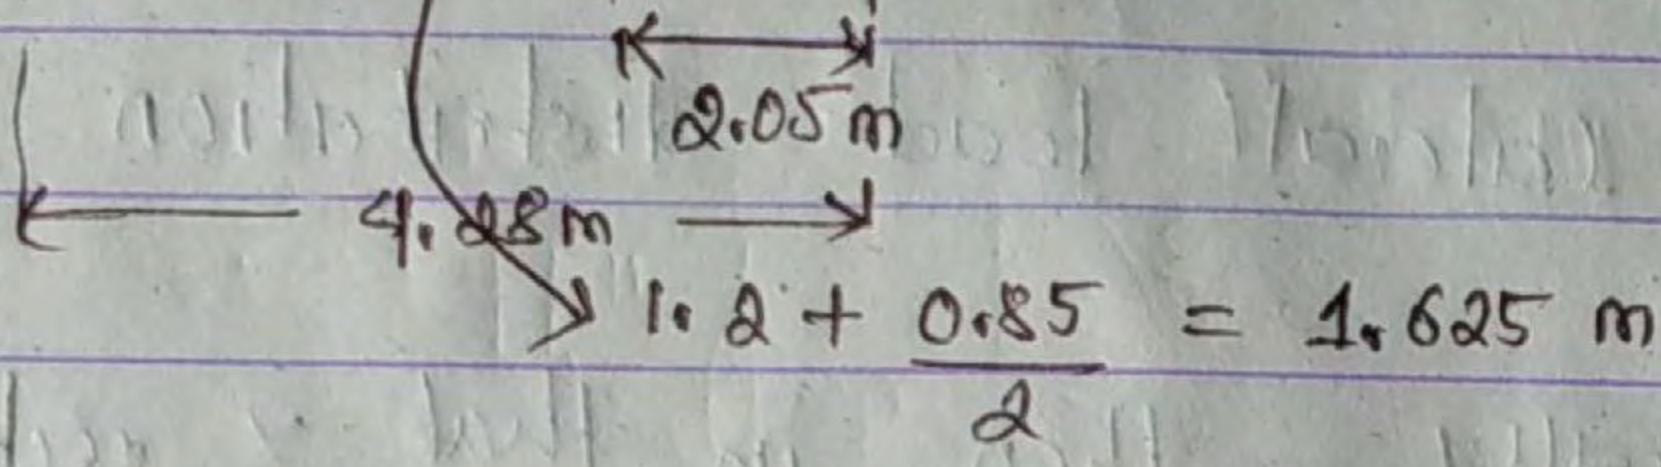 2.05 m
4.28 m
1.2 + 0.85/2 = 1.625 m